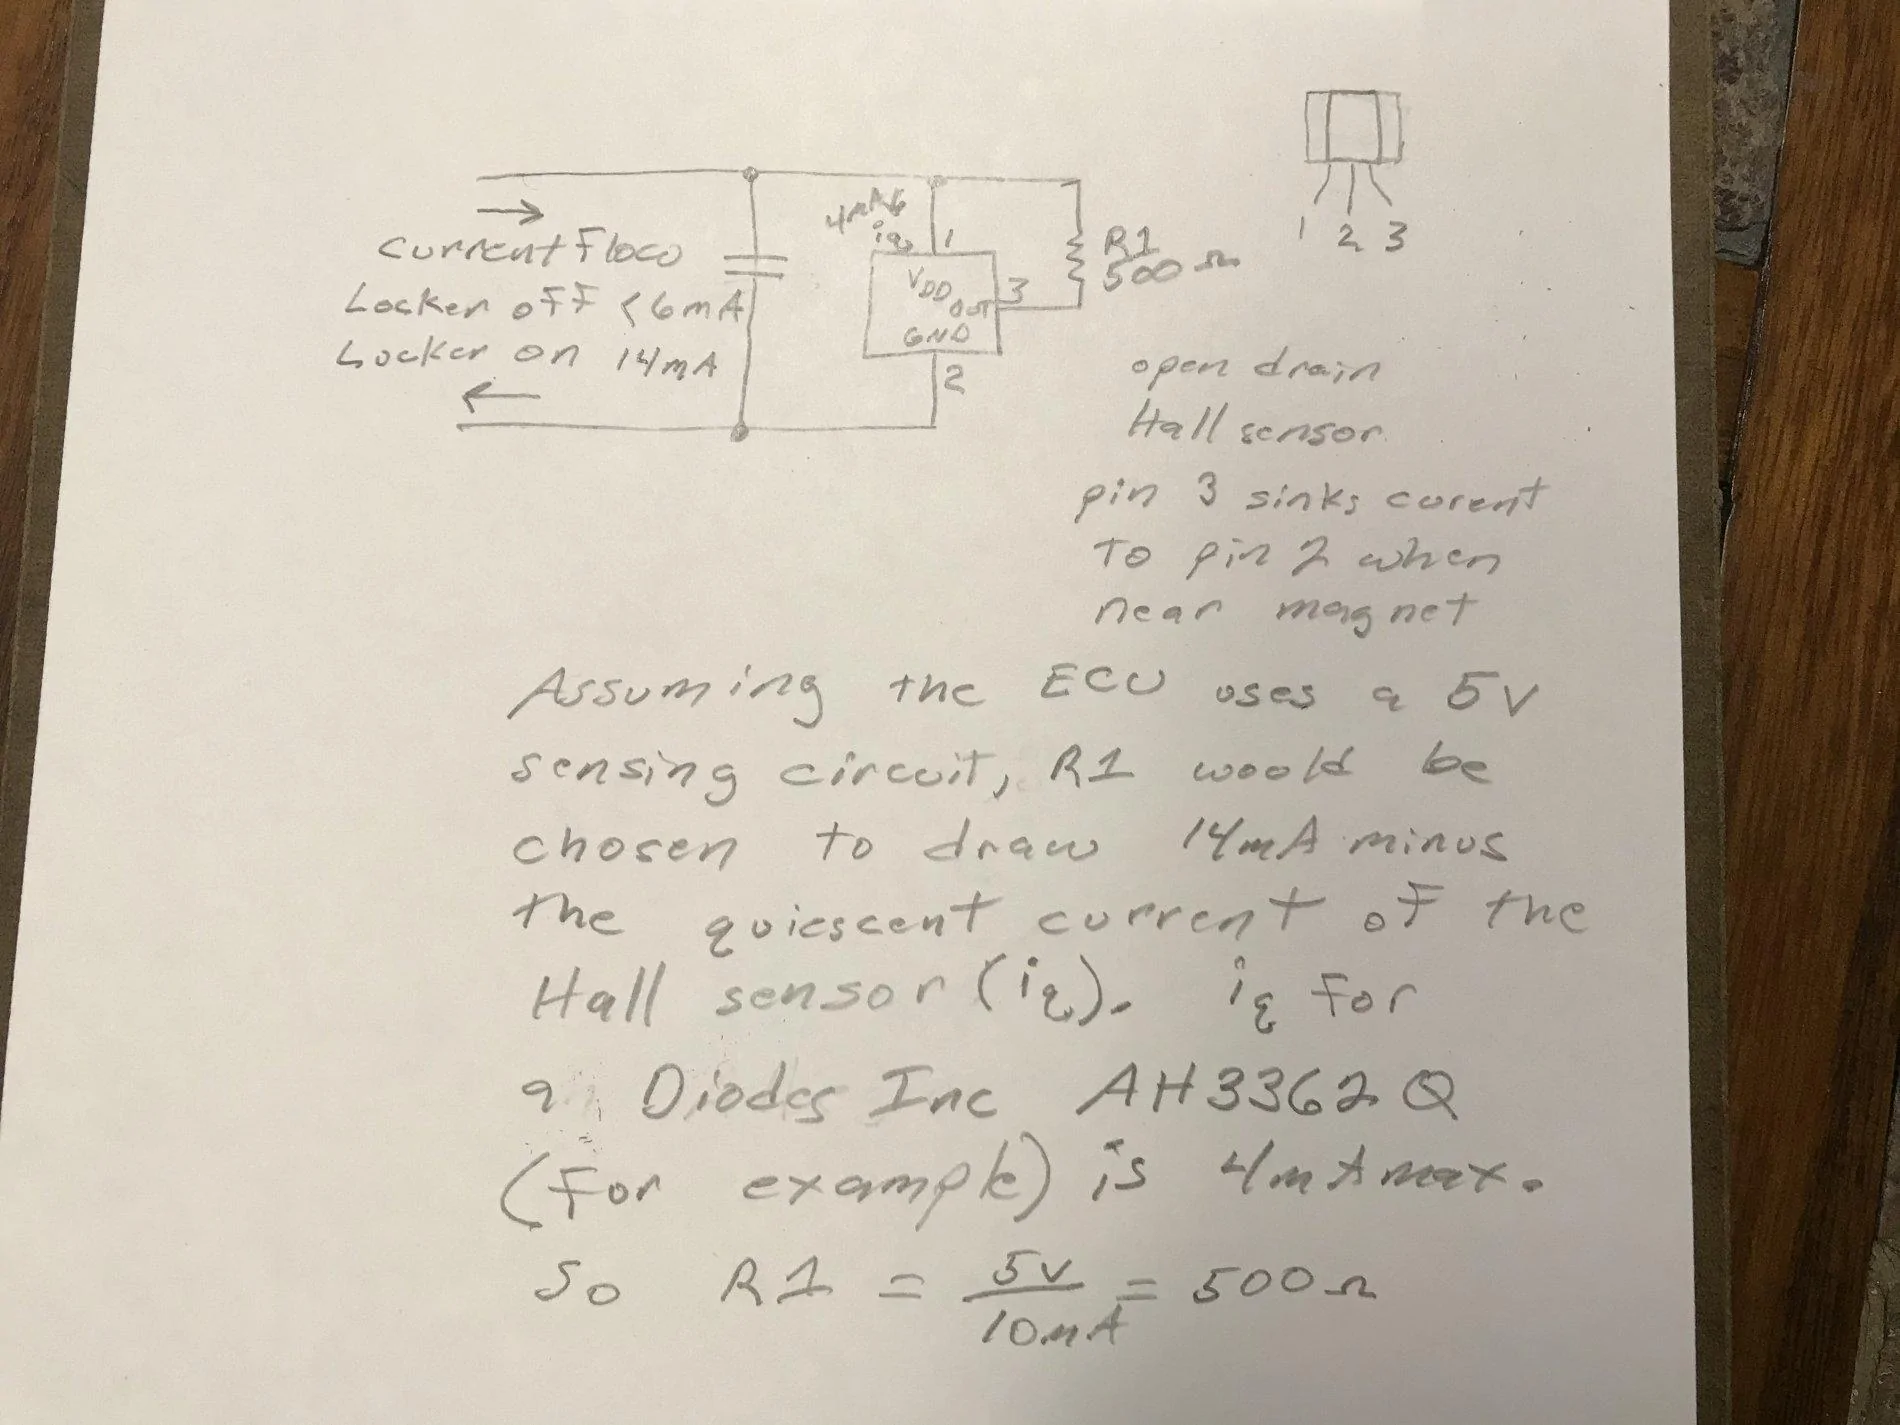 4mA
iq
1
VDD
OUT
3
GND
2
R1
500 Ω
1 2 3
Current Flow
Locker off <6mA
Locker on 14mA
open drain
Hall sensor
pin 3 sinks curent
to pin 2 when
near magnet
Assuming the ECU uses a 5V
sensing circuit, R1 would be
chosen to draw 14mA minus
the quiescent current of the
Hall sensor (iq). iq for
a Diodes Inc AH3362Q
(for example) is 4mA max.
So R1 = 5V / 10mA = 500Ω